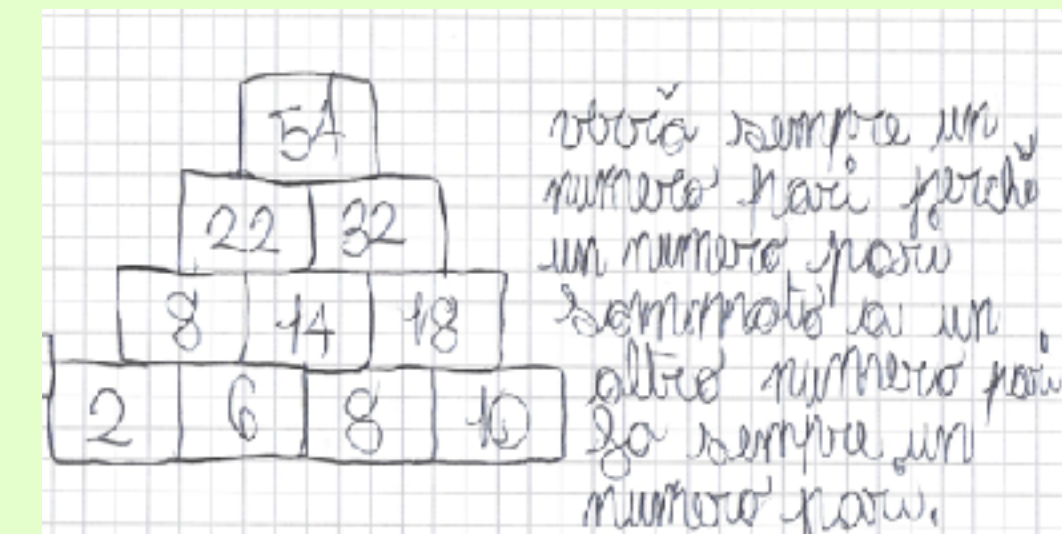 54
22 32
8 14 18
2 6 8 10
verrà sempre un
numero pari perchè
un numero pari
sommato a un
altro numero pari
fa sempre un
numero pari.